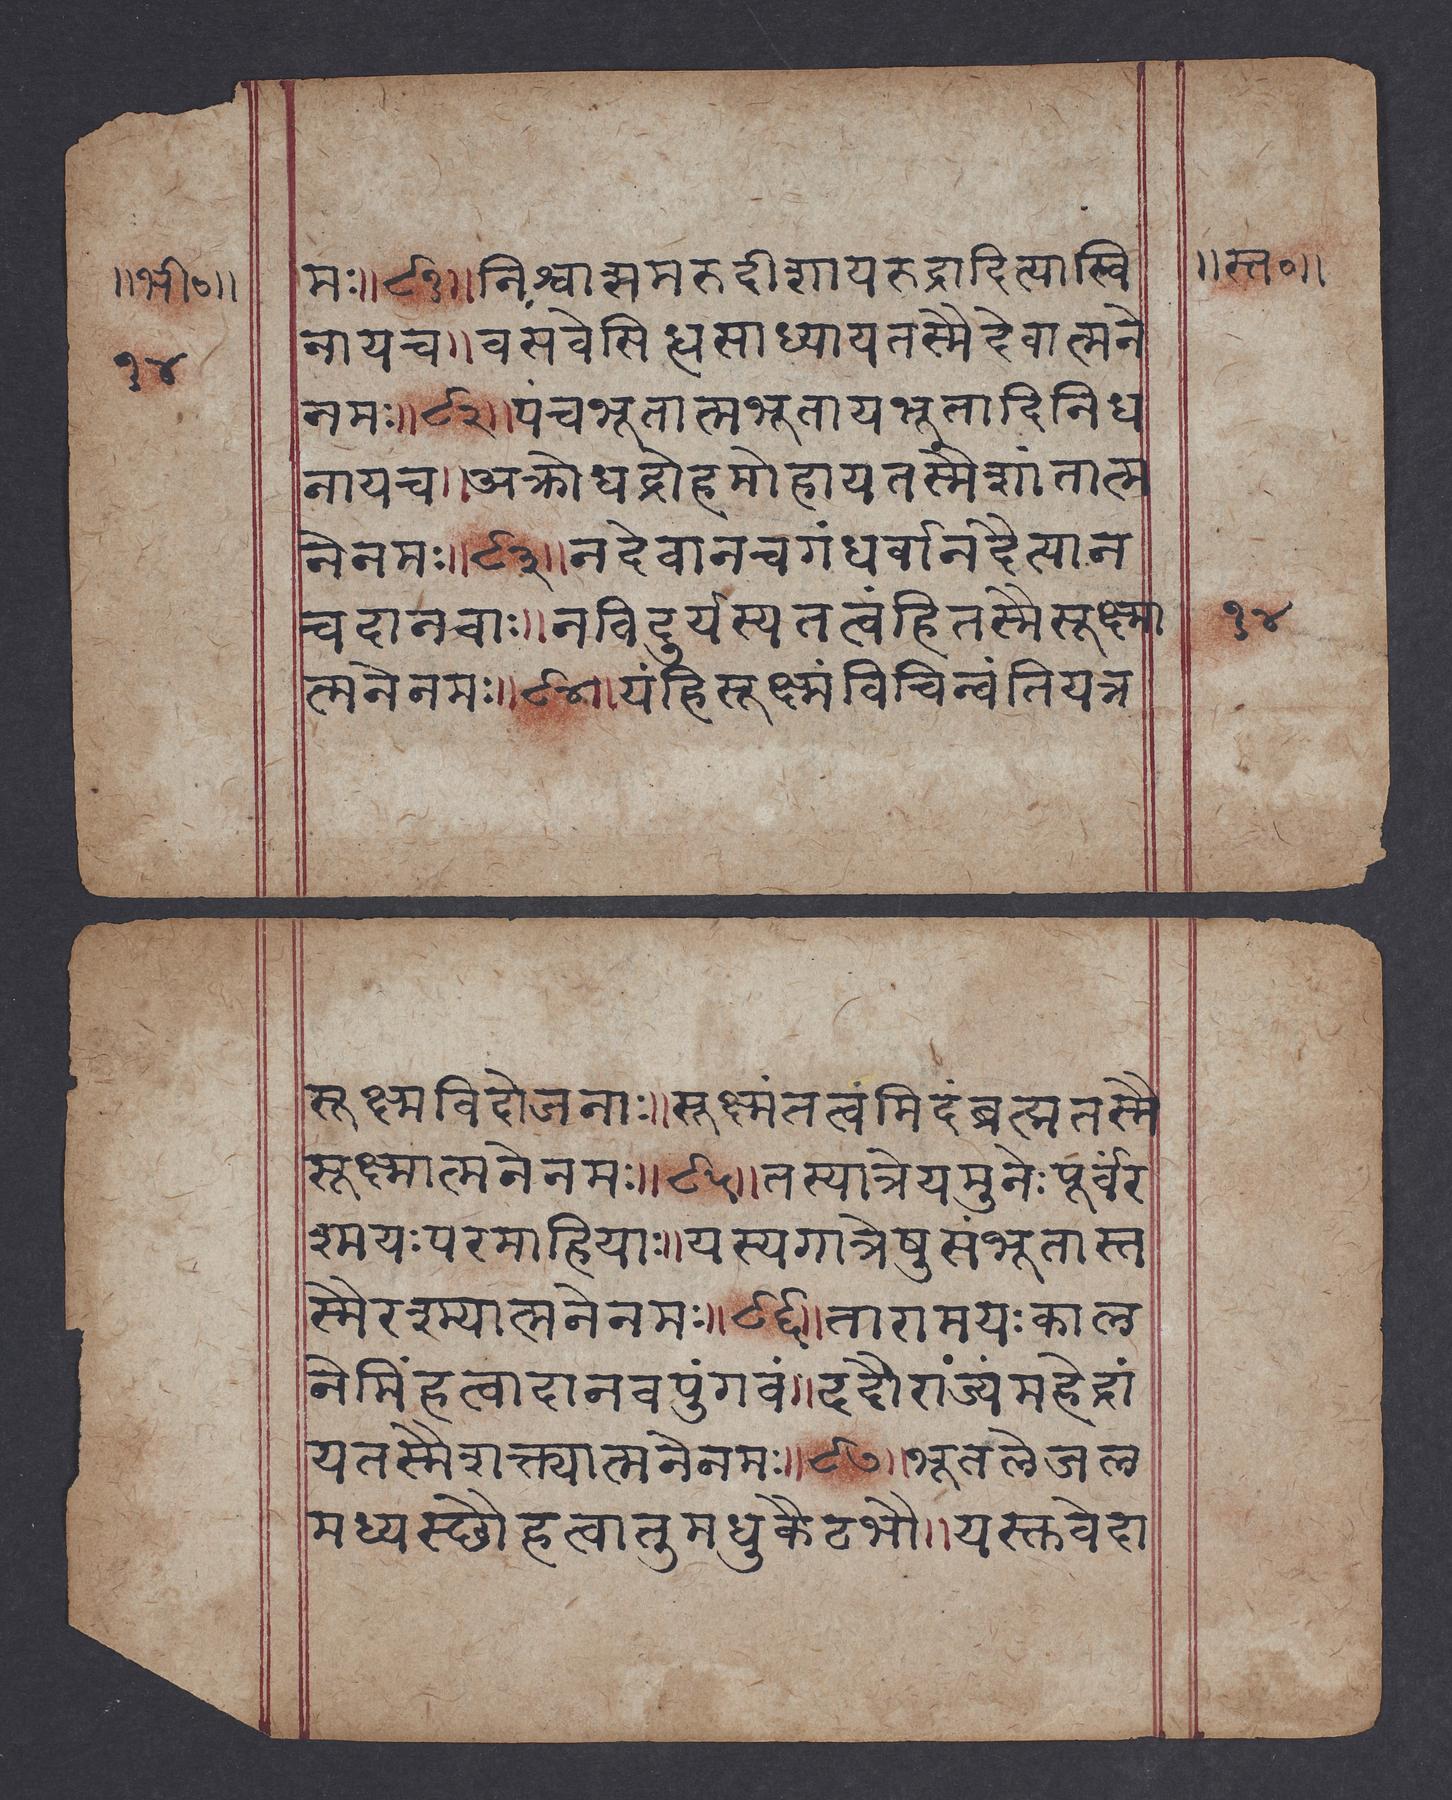 ॥भी०॥
१४
मः॥९१॥निश्वासमरुदीशायरुद्रादित्यास्वि
नायच॥वसंवेसिध्यसाध्यायतस्मैदेवात्मने
नमः॥९२॥पंचभूतात्मभूतायभूतादिनिध
नायच॥अक्रोधद्रोहमोहायतस्मैशांतात्म
नेनमः॥९३॥नदेवानचगंधर्वानदैत्यान
चदानवाः॥नविदुर्यस्यतत्वंहितस्मैसूक्ष्मा
त्मनेनमः॥९४॥यंहिसूक्ष्मंविचिन्वंतियत्र
॥स्त०॥
१४
सूक्ष्मविदोजनाः॥सूक्ष्मंतत्वंमिदंब्रत्मतस्मै
सूक्ष्मात्मनेनमः॥९५॥तस्यात्रेयमुनेःपूर्वेर
श्मयःपरमाहियाः॥यस्यगात्रेषुसंभूतास्त
स्मैरश्म्यात्मनेनमः॥९६॥तारामयःकाल
नेमिंहत्वादानवपुंगवं॥ददौरांज्यंमहेद्रां
यतस्मैशक्त्यात्मनेनमः॥९७॥भूतलेजल
मध्यस्छौहत्वातुमधुकैटभौ॥यस्तवेदा